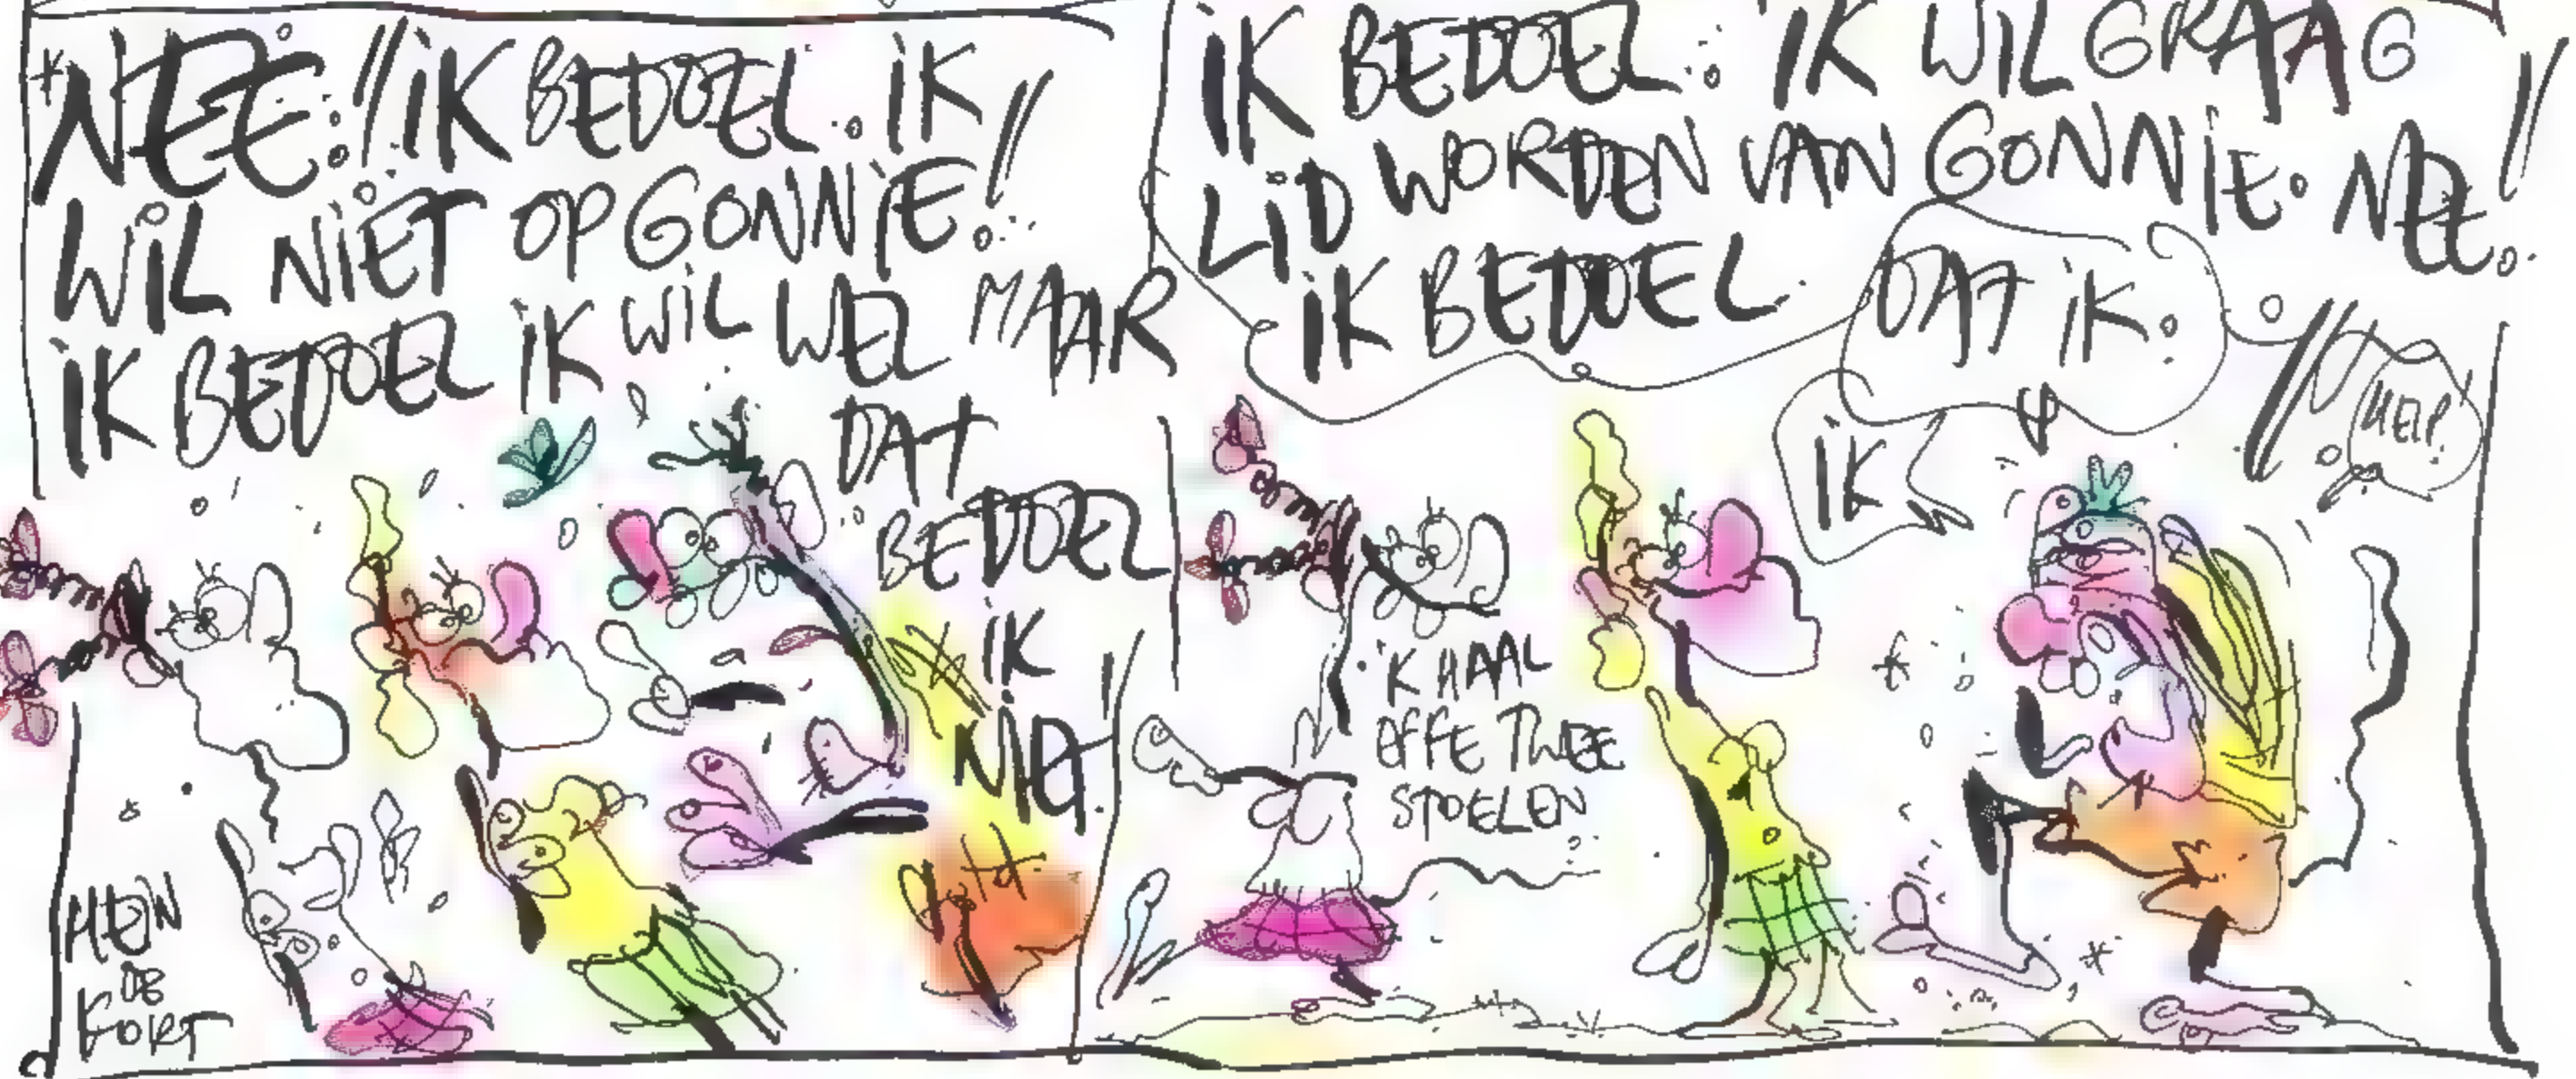 NEE!! IK BEDOEL. IK
WIL NIET OP GONNIE!!
IK BEDOEL IK WIL WEL MAAR
DAT
BEDOEL
IK
NIET!
HEIN
DE
KORT
IK BEDOEL: IK WIL GRAAG
LID WORDEN VAN GONNIE. NEE!!
IK BEDOEL.
DAT IK.
IK
HELP!
'K HAAL
EFFE TWEE
STOELEN